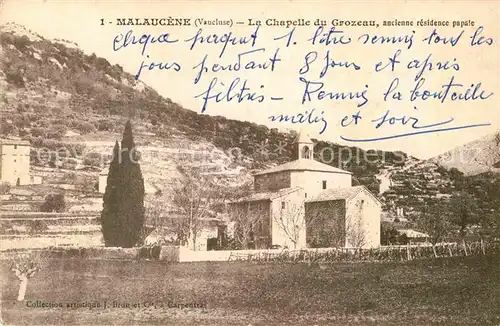 1 - MALAUCÈNE (Vaucluse) - La Chapelle du Grozeau, ancienne résidence papale
jours pendant 8 jours et après
filtrés - Remuis la bouteille
matin et soir
Collection artistique J. Brun et Cie, à Carpentras